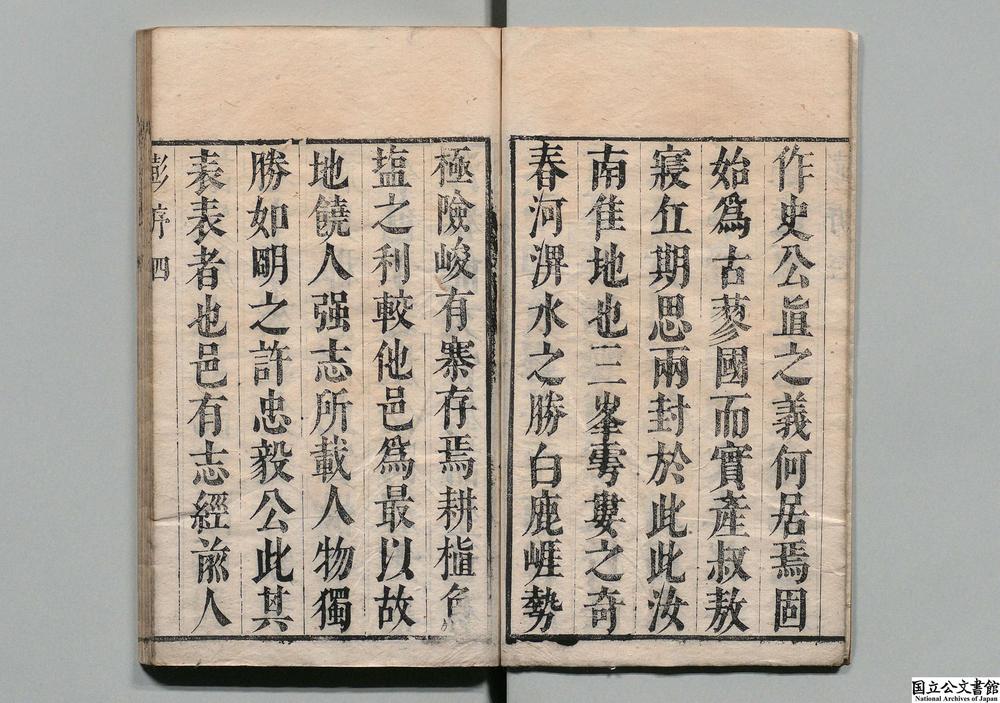 作史公眞之義何居焉固
始爲古蓼國而實產叔敖
寢丘期思兩封於此此汝
南佳地也三峯雩婁之奇
春河淠水之勝白鹿崕勢
極險峻有寨存焉耕植魚
塩之利較他邑爲最以故
地饒人强志所載人物獨
勝如明之許忠毅公此其
表表者也邑有志經前人
彭序 四
国立公文書館
National Archives of Japan